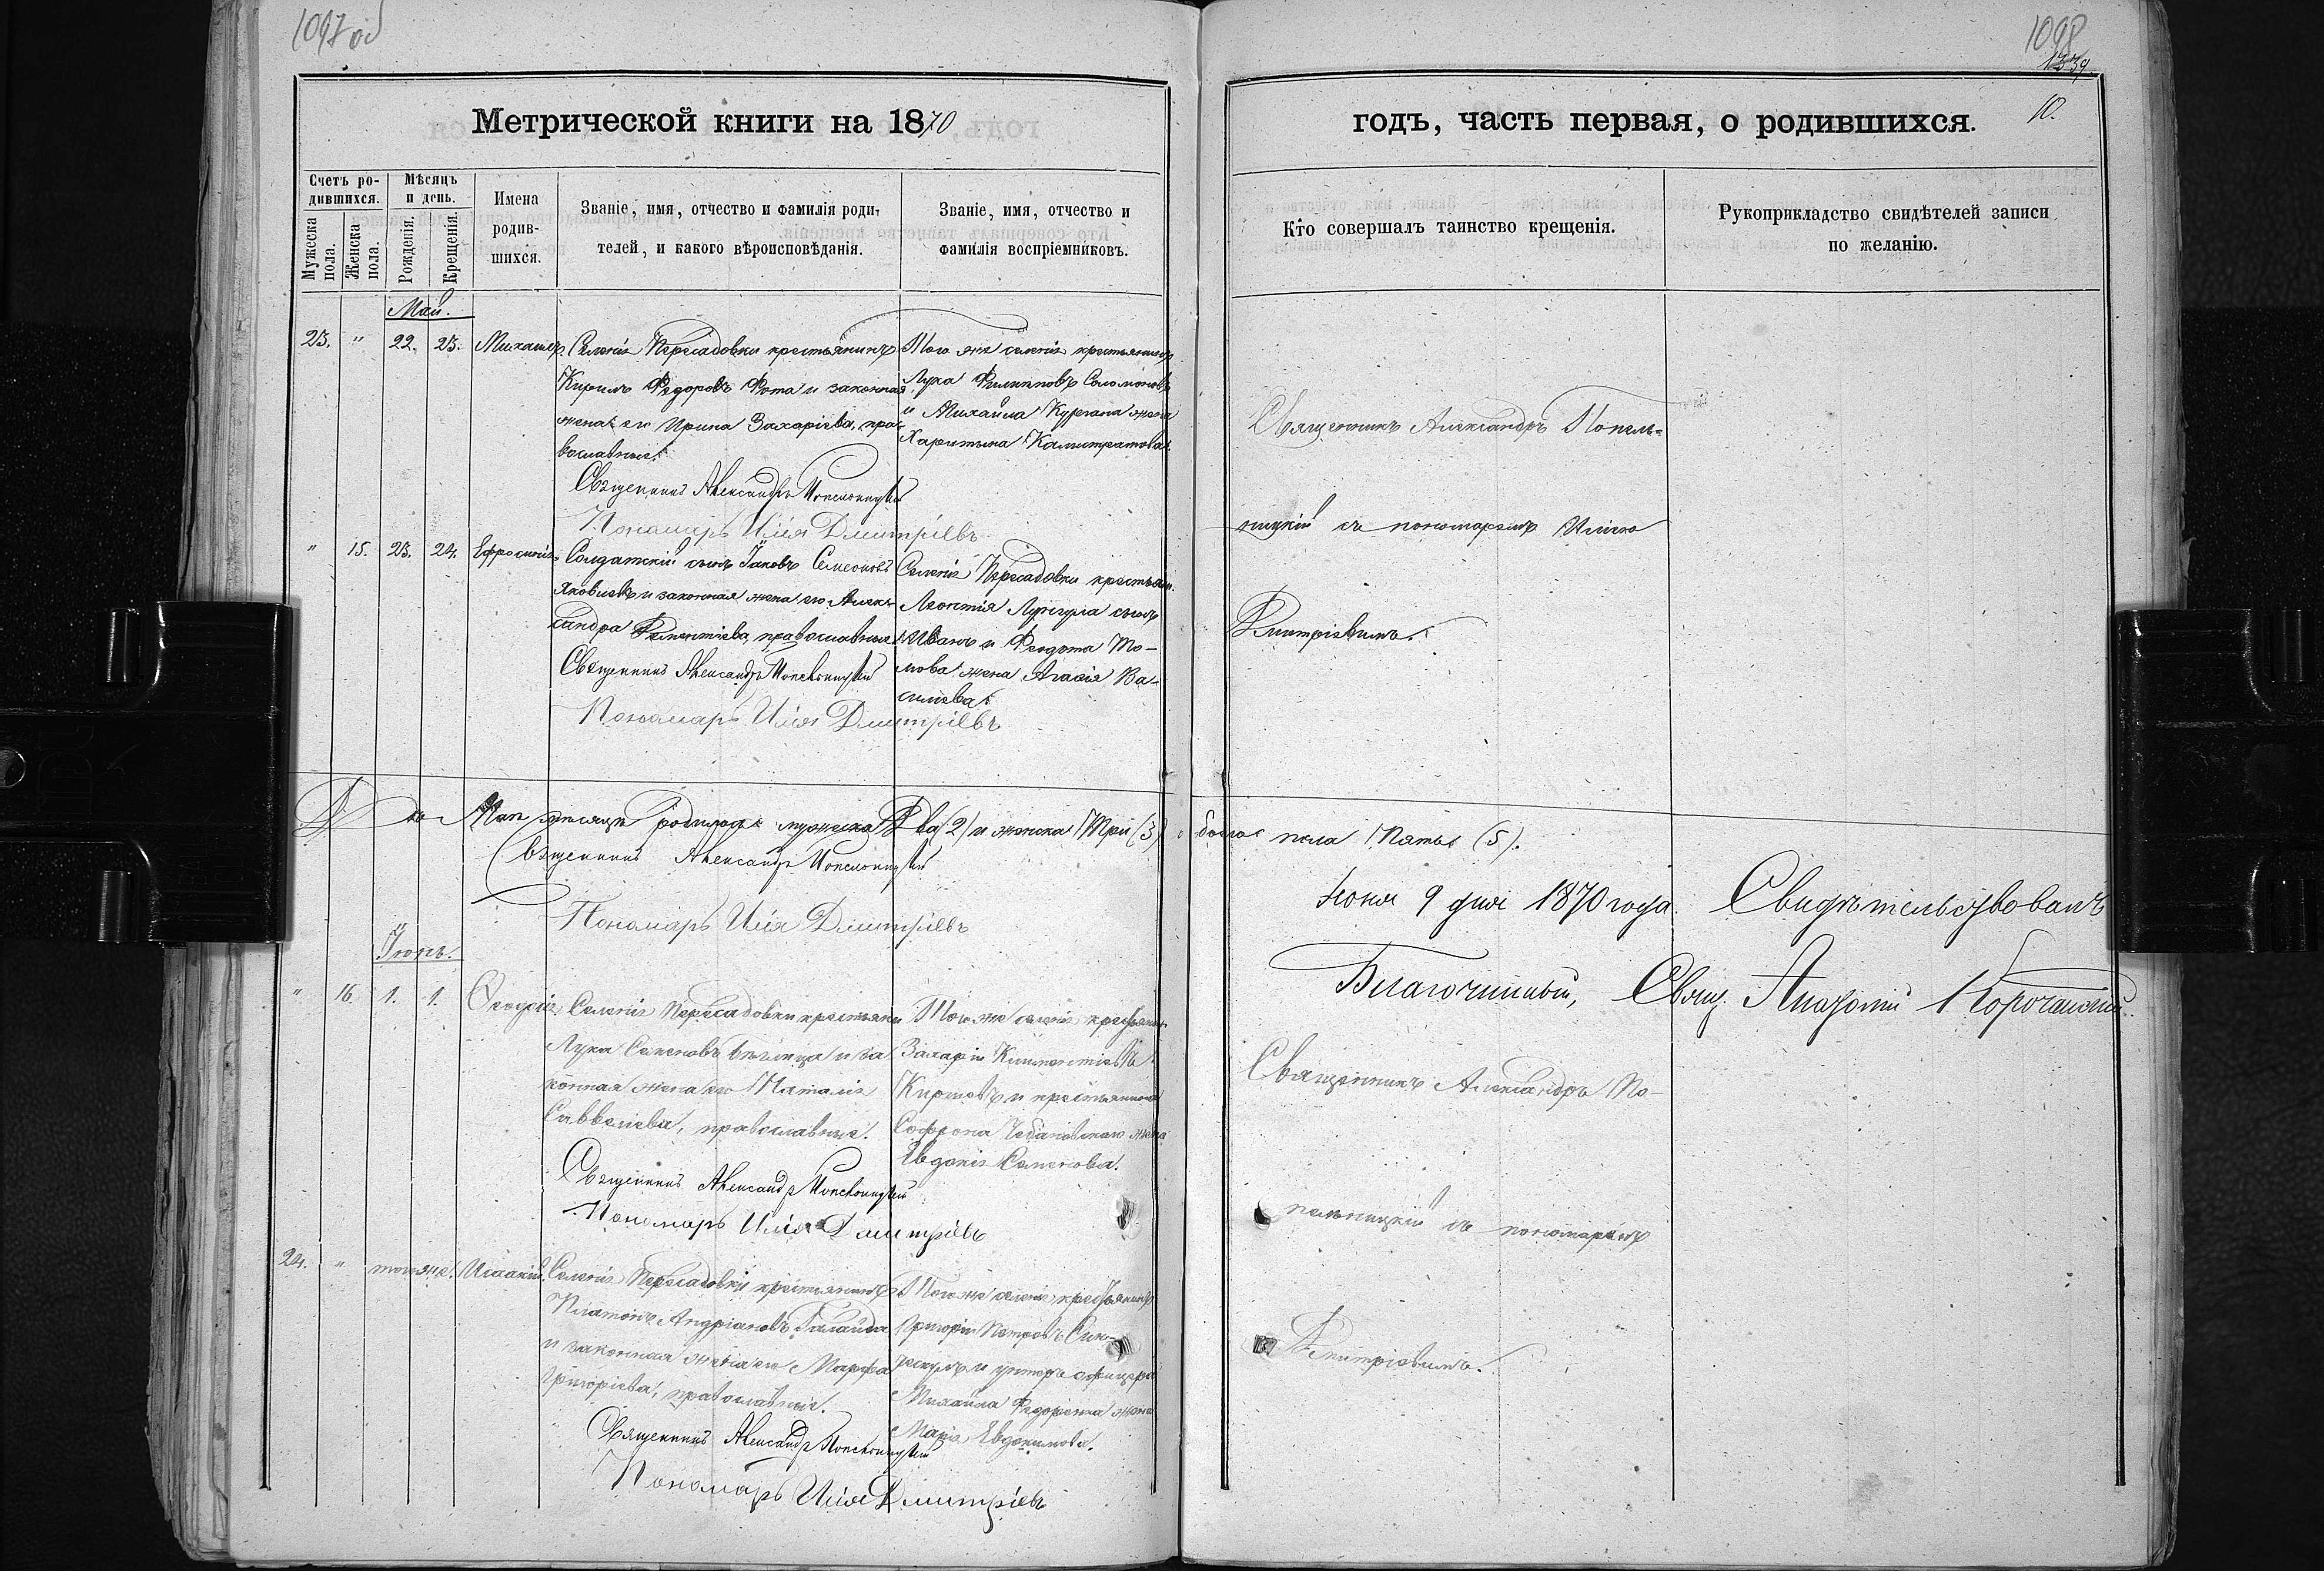 1097 об
1098
1339
10.
Метрической книги на 1870
годъ, часть первая, о родившихся.
Счетъ родившихся.
Мужеска пола.
Женска пола.
Мѣсяцъ и день.
Рожденія.
Крещенія.
Имена родив-
шихся.
Званіе, имя, отчество и фамилія роди-
телей, и какого вѣроисповѣданія.
Званіе, имя, отчество и
фамилія воспріемниковъ.
Кто совершалъ таинство крещенія.
Рукоприкладство свидѣтелей записи
по желанію.
Май.
23. " 22. 23. Михаилъ.
Селенія Пересадовки крестьянинъ
Кирилъ Ѳедоровъ Фота и законная
жена его Ирина Захаріева, пра-
вославные.
Священникъ Александръ Попельницкій
Пономарь Илія Димитріевъ
Того же селенія крестьянинъ
Лука Филипповъ Соломоновъ
и Михаила Кургана жена
Харитина Калистратова.
Священникъ Александръ Попель-
ницкій съ пономаремъ Иліею
Димитріевымъ.
" 15. 23. 24. Ефросинія.
Солдатскій сынъ Іаковъ Симеоновъ
Яковлевъ и законная жена его Алек-
сандра православные.
Священникъ Александръ Попельницкій
Пономарь Илія Димитріевъ
Селенія Пересадовки крестьян.
Леонтія сынъ
Иванъ и Ѳеодота То-
мова жена Агафія Ва-
силіева.
Маѣ мѣсяцѣ родилось мужеска Два (2) и женска Три (3) обоего пола Пять (5).
Священникъ Александръ Попельницкій
Пономарь Илія Димитріевъ
Іюня 9 дня 1870 года. Свидѣтельствовалъ
Благочинный, Свящ. Анатолій
Іюнь.
" 16. 1. 1. Ѳеодосія.
Селенія Пересадовки крестьянинъ
Лука Семеновъ и за-
конная жена его Наталія
Саввеліева, православные.
Священникъ Александръ Попельницкій
Пономарь Илія Димитріевъ
Того же селенія крестьянинъ
Захарій Климентіевъ
и крестьянина
Софрона жена
Евдокія Семенова.
Священникъ Александръ По-
пельницкій съ пономаремъ
Димитріевымъ.
24. " того же. Исаакій.
Селенія Пересадовки крестьянинъ
Платонъ Андріановъ Галайда
и законная жена его Марфа
Григоріева, православные.
Священникъ Александръ Попельницкій
Пономарь Илія Димитріевъ
Того же селенія крестьянинъ
Григорій Петровъ
и унтеръ офицера
Михаила Ѳедоренка жена
Марія Евдокимова.